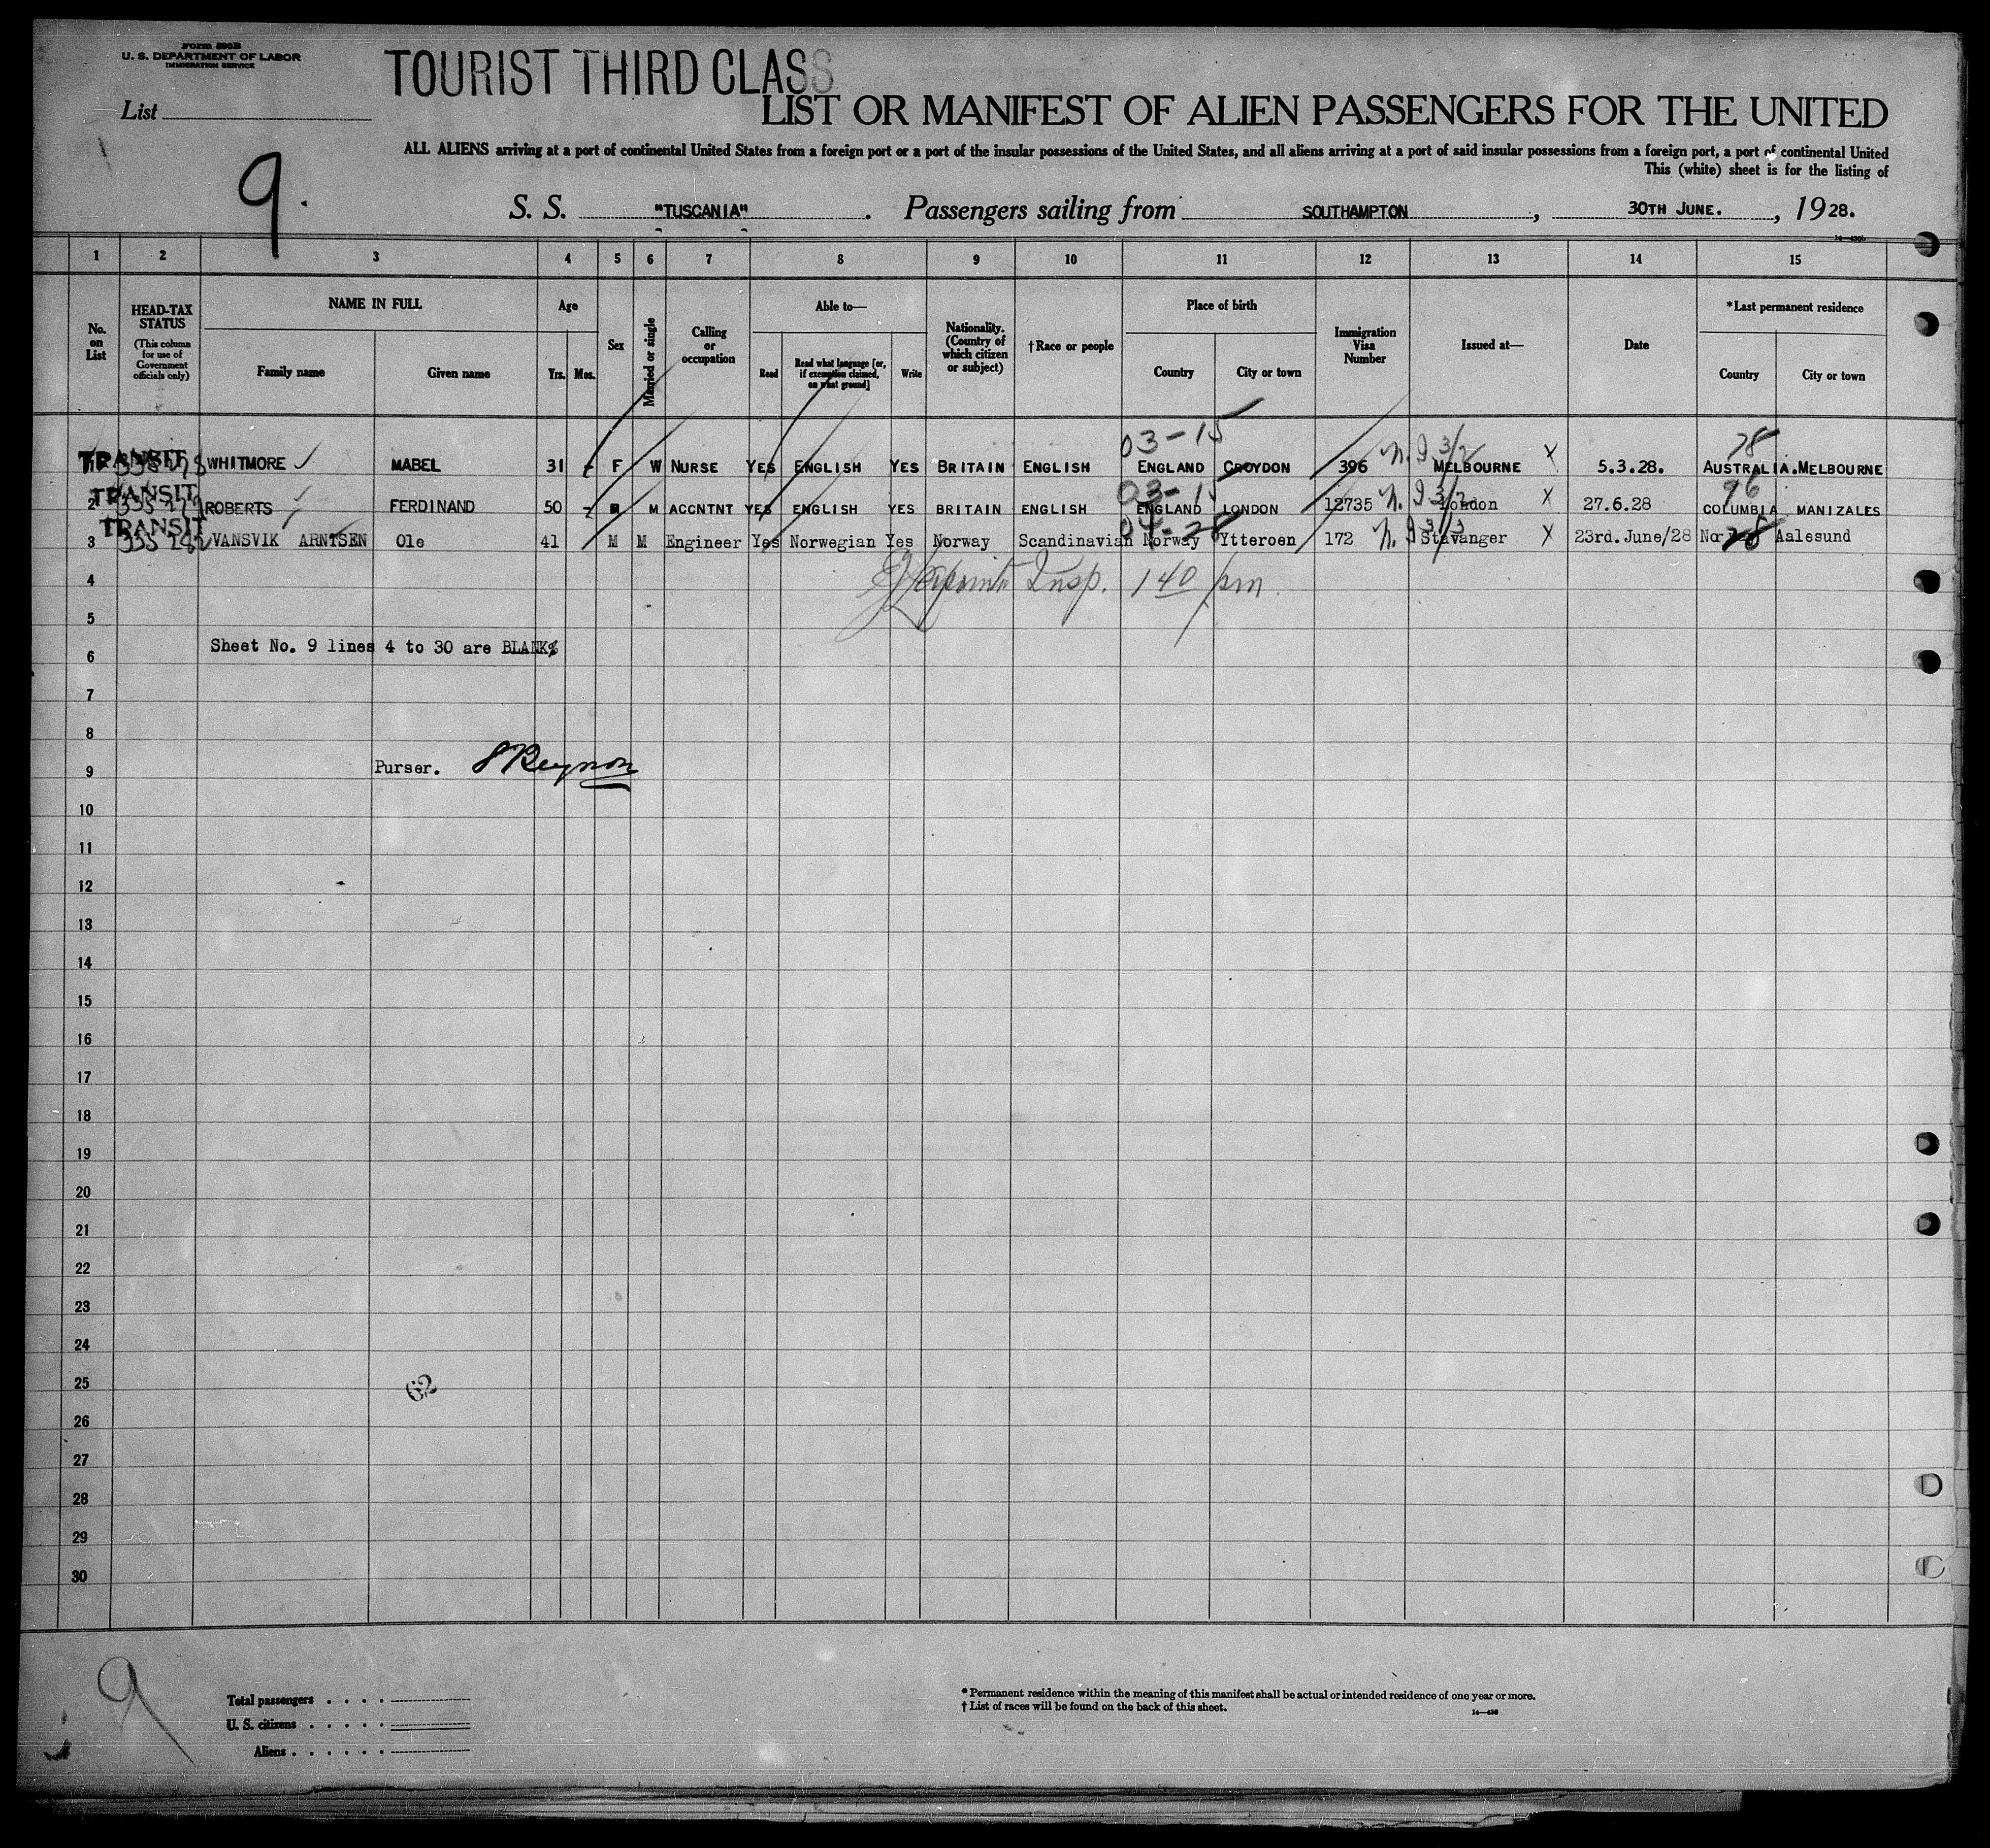 Form 500B
U. S. DEPARTMENT OF LABOR
IMMIGRATION SERVICE
TOURIST THIRD CLASS
List
LIST OR MANIFEST OF ALIEN PASSENGERS FOR THE UNITED
ALL ALIENS arriving at a port of continental United States from a foreign port or a port of the insular possessions of the United States, and all aliens arriving at a port of said insular possessions from a foreign port, a port of continental United
This (white) sheet is for the listing of
9.
S. S. "TUSCANIA". Passengers sailing from SOUTHAMPTON, 30TH JUNE., 1928.
1 2 3 4 5 6 7 8 9 10 11 12 13 14 15
No. on List
HEAD-TAX STATUS (This column for use of Government officials only)
NAME IN FULL
Family name
Given name
Age
Yrs. Mos.
Sex
Married or single
Calling or occupation
Able to—
Read
Read what language [or, if exemption claimed, on what ground]
Write
Nationality. (Country of which citizen or subject)
† Race or people
Place of birth
Country
City or town
Immigration Visa Number
Issued at—
Date
*Last permanent residence
Country
City or town
03-15 78
TRANSIT WHITMORE MABEL 31 F W NURSE YES ENGLISH YES BRITAIN ENGLISH ENGLAND CROYDON 396 3/2 MELBOURNE X 5.3.28. AUSTRALIA. MELBOURNE
03-15 96
2 TRANSIT ROBERTS FERDINAND 50 M ACCNTNT YES ENGLISH YES BRITAIN ENGLISH ENGLAND LONDON 12735 3/2 London X 27.6.28 COLUMBIA MANIZALES
3 TRANSIT VANSVIK ARNTSEN Ole 41 M M Engineer Yes Norwegian Yes Norway Scandinavian Norway Ytteroen 172 3/3 Stavanger X 23rd. June/28 Norway Aalesund
4 Insp. 140 pm.
5
Sheet No. 9 lines 4 to 30 are BLANK
6
7
8
9 Purser.
10
11
12
13
14
15
16
17
18
19
20
21
22
23
24
25 62
26
27
28
29
30
9
Total passengers . . . .
U. S. citizens . . . . .
Aliens . . . . . .
* Permanent residence within the meaning of this manifest shall be actual or intended residence of one year or more.
† List of races will be found on the back of this sheet.